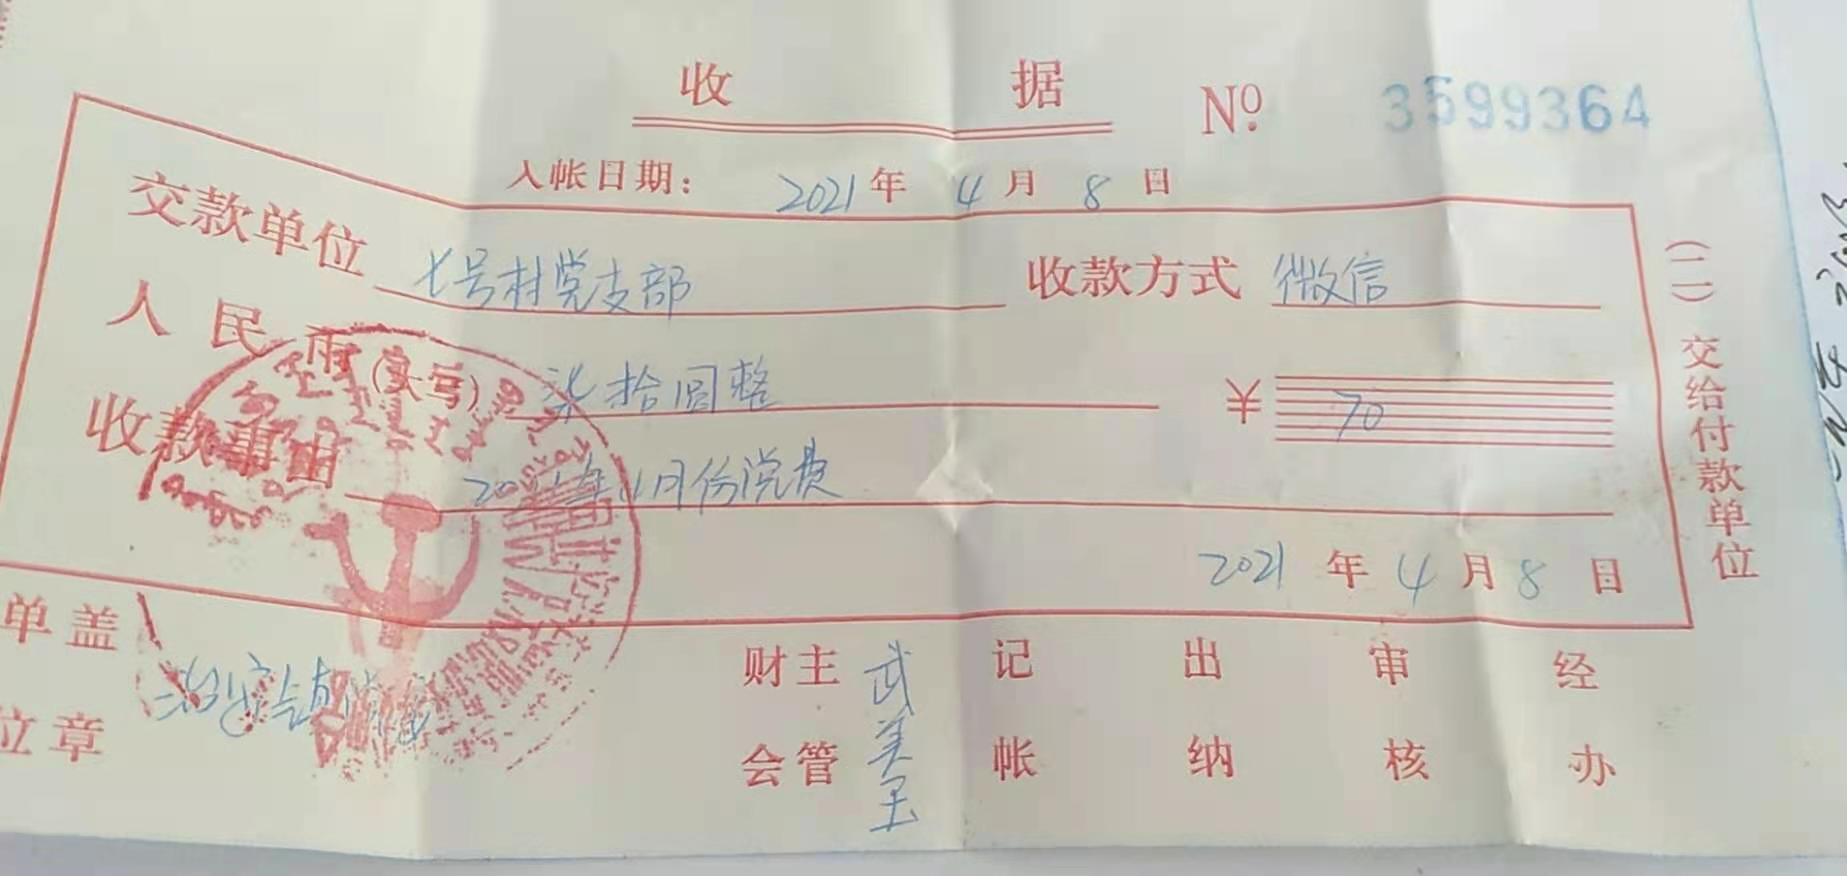 收 据 Nº 3599364
入帐日期： 2021 年 4 月 8 日
交款单位 七号村党支部 收款方式 微信
人民币(大写) 柒拾圆整 ¥ 70
收款事由 20 年4月份党费
2021 年 4 月 8 日
(二)交给付款单位
单盖 财主 记 出 审 经
位章 会管 帐 纳 核 办
武美玉